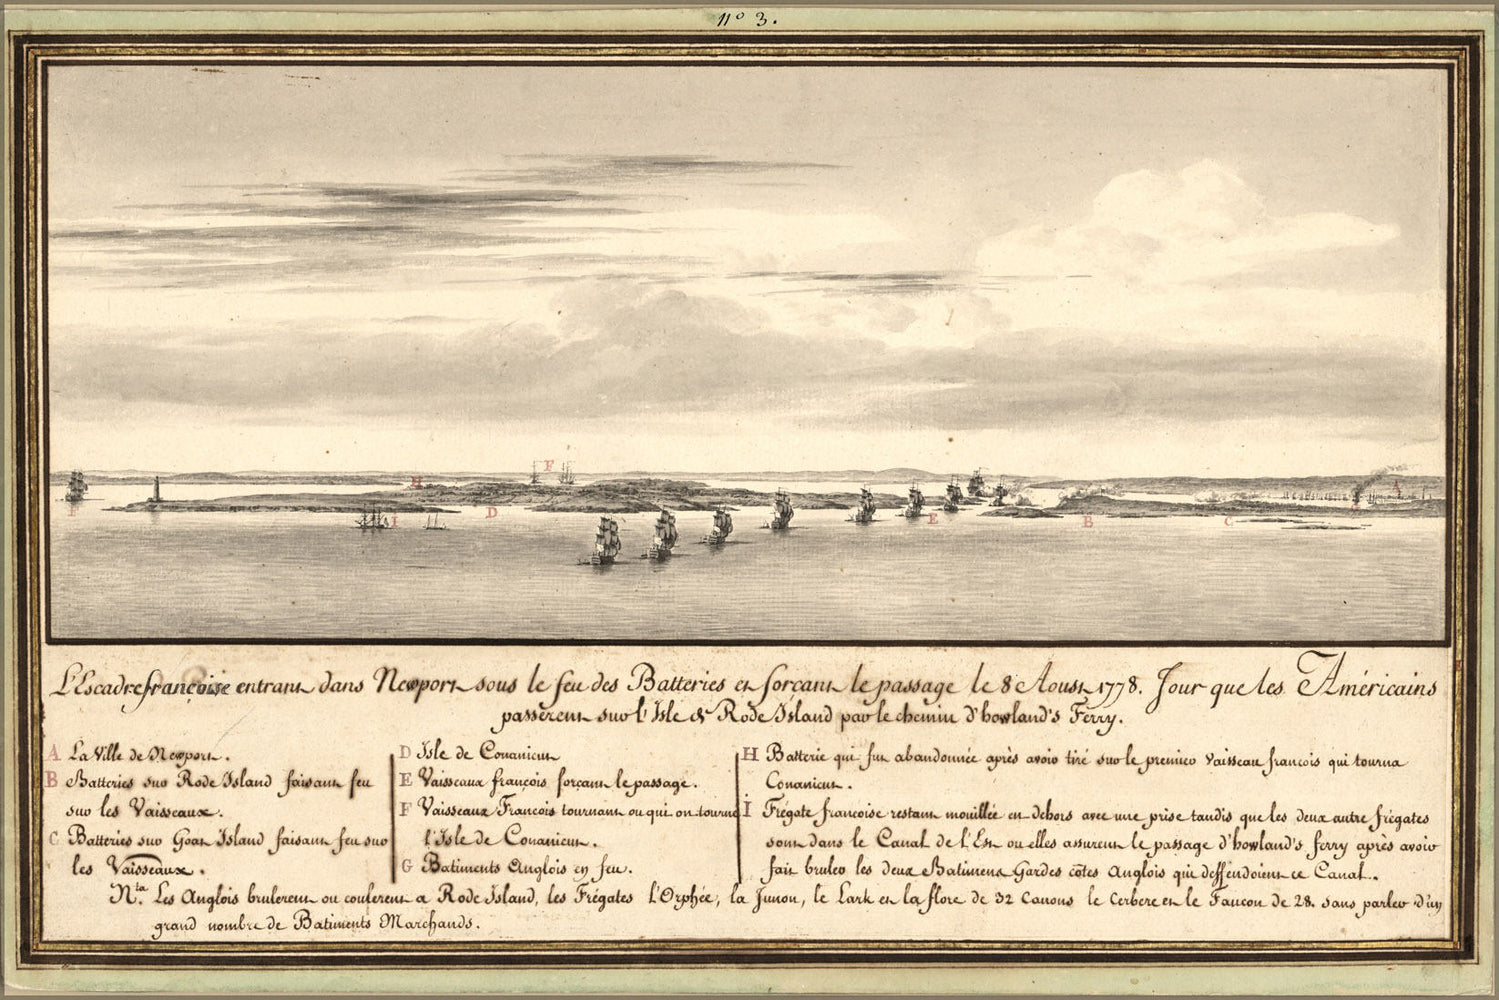 nº 3.
F
H
F
I
D
E
B
C
G
A
L'Escadre françoise entrant dans Newport sous le feu des Batteries et forçant le passage le 8 Aoust 1778. Jour que les Américains
passèrent sur l'Isle de Rode Island par le chemin d'howland's Ferry.
A La Ville de Newport.
B Batteries sur Rode Island faisant feu
sur les Vaisseaux.
C Batteries sur Goat Island faisant feu sur
les Vaisseaux.
D Isle de Conanicut
E Vaisseaux françois forçant le passage.
F Vaisseaux François tournant ou qui ont tourné
l'Isle de Conanicut.
G Batiments Anglois en feu.
H Batterie qui fut abandonnée après avoir tiré sur le premier vaisseau françois qui tourna
Conanicut.
I Frégate françoise restant mouillée en dehors avec une prise tandis que les deux autre frégates
sont dans le Canal de l'Est ou elles assurent le passage d'howland's ferry après avoir
fait bruler les deux Batimens Gardes côtes Anglois qui deffendoient ce Canal.
Nta. Les Anglois brulerent ou coulerent a Rode Island, les Frégates l'Orphée, la Junon, le Lark et la flore de 32 Canons le Cerbere et le Faucon de 28. sans parler d'un
grand nombre de Batiments Marchands.